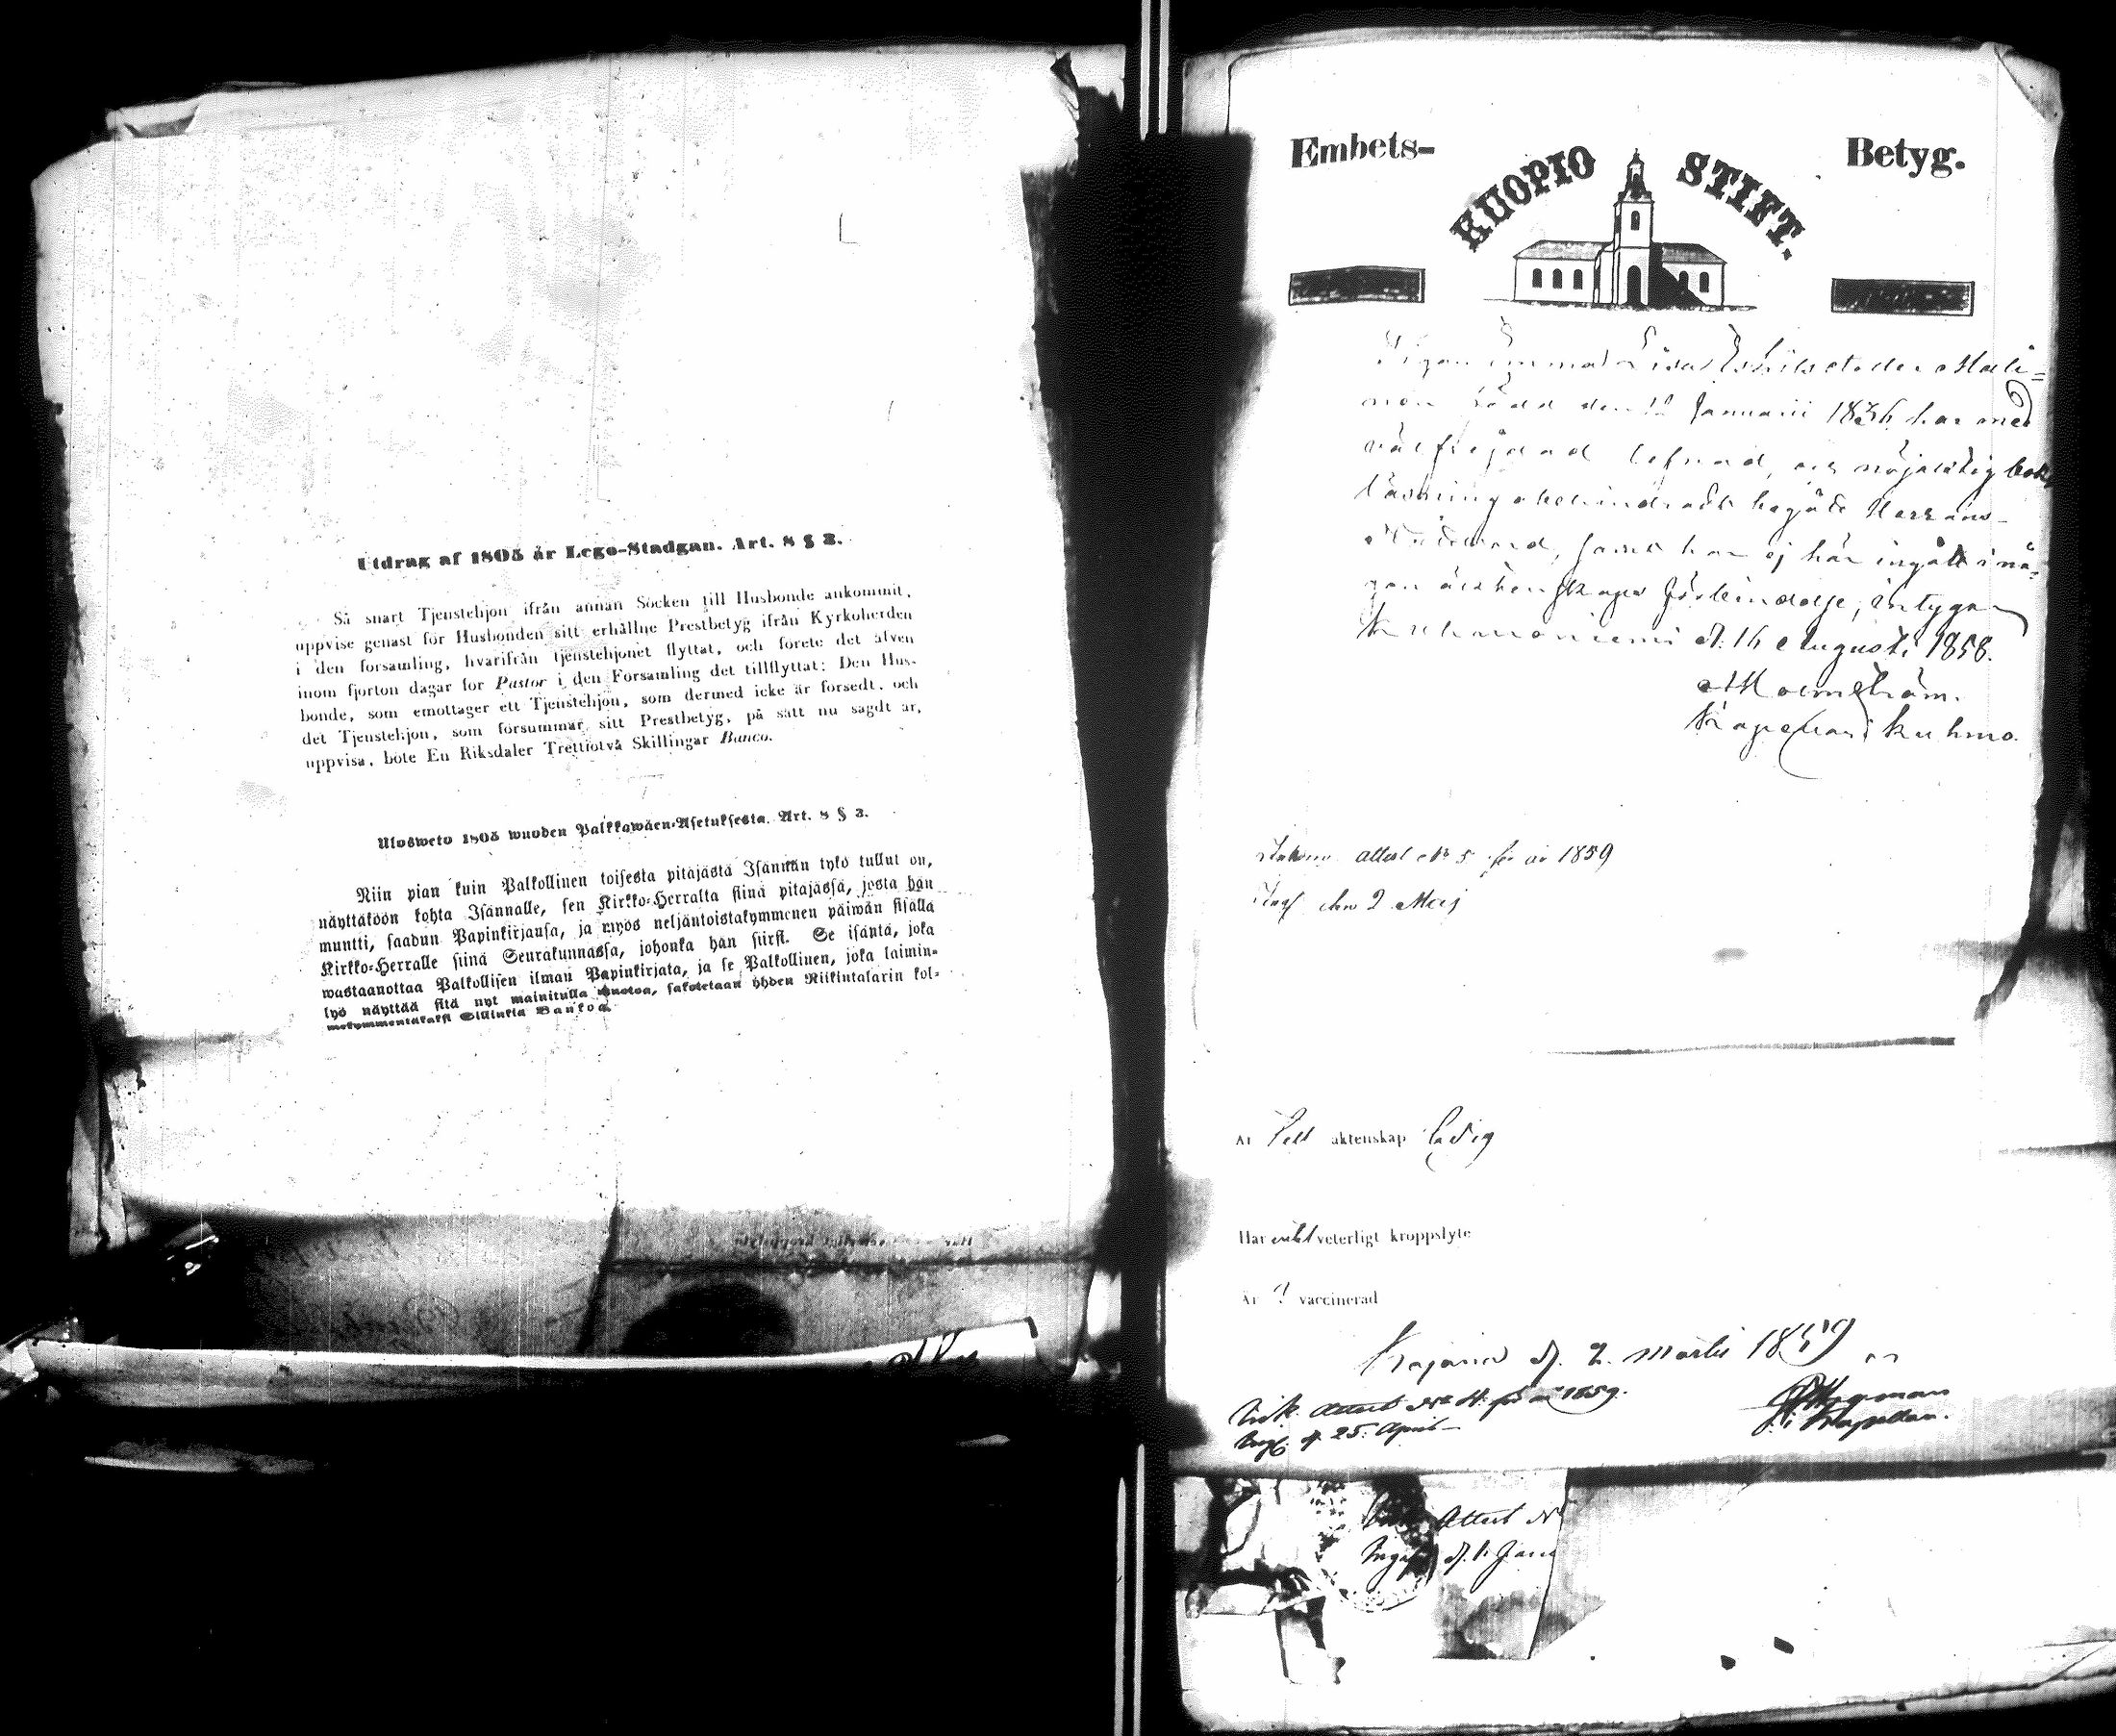 Utdrag af 1805 år Lego-Stadgan. Art. 8 § 3.
Så snart Tjenstehjon ifrån annan Socken till Husbonde ankommit,
uppvise genast för Husbonden sitt erhållne Prestbetyg ifrån Kyrkoherden
i den forsamling, hvarifrån tjenstehjonet flyttat, och förete det äfven
inom fjorton dagar for Pastor i den Forsamling det tillflyttat: Den Hus-
bonde, som emottager ett Tjenstehjon, som dermed icke är forsedt, och
det Tjenstehjon, som försummar sitt Prestbetyg, på sätt nu sagdt är,
uppvisa, bote En Riksdaler Trettiotvå Skillingar Banco.
Ulosweto 1805 wuoden Palkkawäen-Asetuksesta. Art. 8 § 3.
Niin pian kuin Palkollinen toisesta pitäjästä Isännän tykö tullut on,
näyttäköön kohta Isännälle, sen Kirkko-Herralta siinä pitäjässä, josta hän
muutti, saadun Papinkirjansa, ja myös neljäntoistakymmenen päiwän sisällä
Kirkko-Herralle siinä Seurakunnassa, johonka hän siirsi. Se isäntä, joka
wastaanottaa Palkollisen ilman Papinkirjata, ja se Palkollinen, joka laimin-
lyö näyttää sitä nyt mainitulla muotoa, sakotetaan yhden Riikintalarin kol-
mekymmentäkaksi Sillinkiä Bankoa.
Embets- Betyg.
KUOPIO STIFT.
Pigan Emma Lisa Eskilsdotter Mali-
nen född den 12 Januarii 1836 har med
välfrejdad lefnad, och nöjaktig bok
läsning obehindradt begått Herrans
Nattvard, samt har ej här ingått i nå-
gon äktenskaps förbindelse, intygar
Kuhmoniemi d. 16 Augusti 1858.
Holmström.
Kapellan i Kuhmo.
attest No 5 för år 1859
den 2 Maj
Är till äktenskap ledig
Har intet veterligt kroppslyte
Är ? vaccinerad
Kajana d. 2. Martii 1859
Attest No 4. för år 1859.
Ingf. d. 25. April
Kapellan.
Attest N
d. 1. Janu